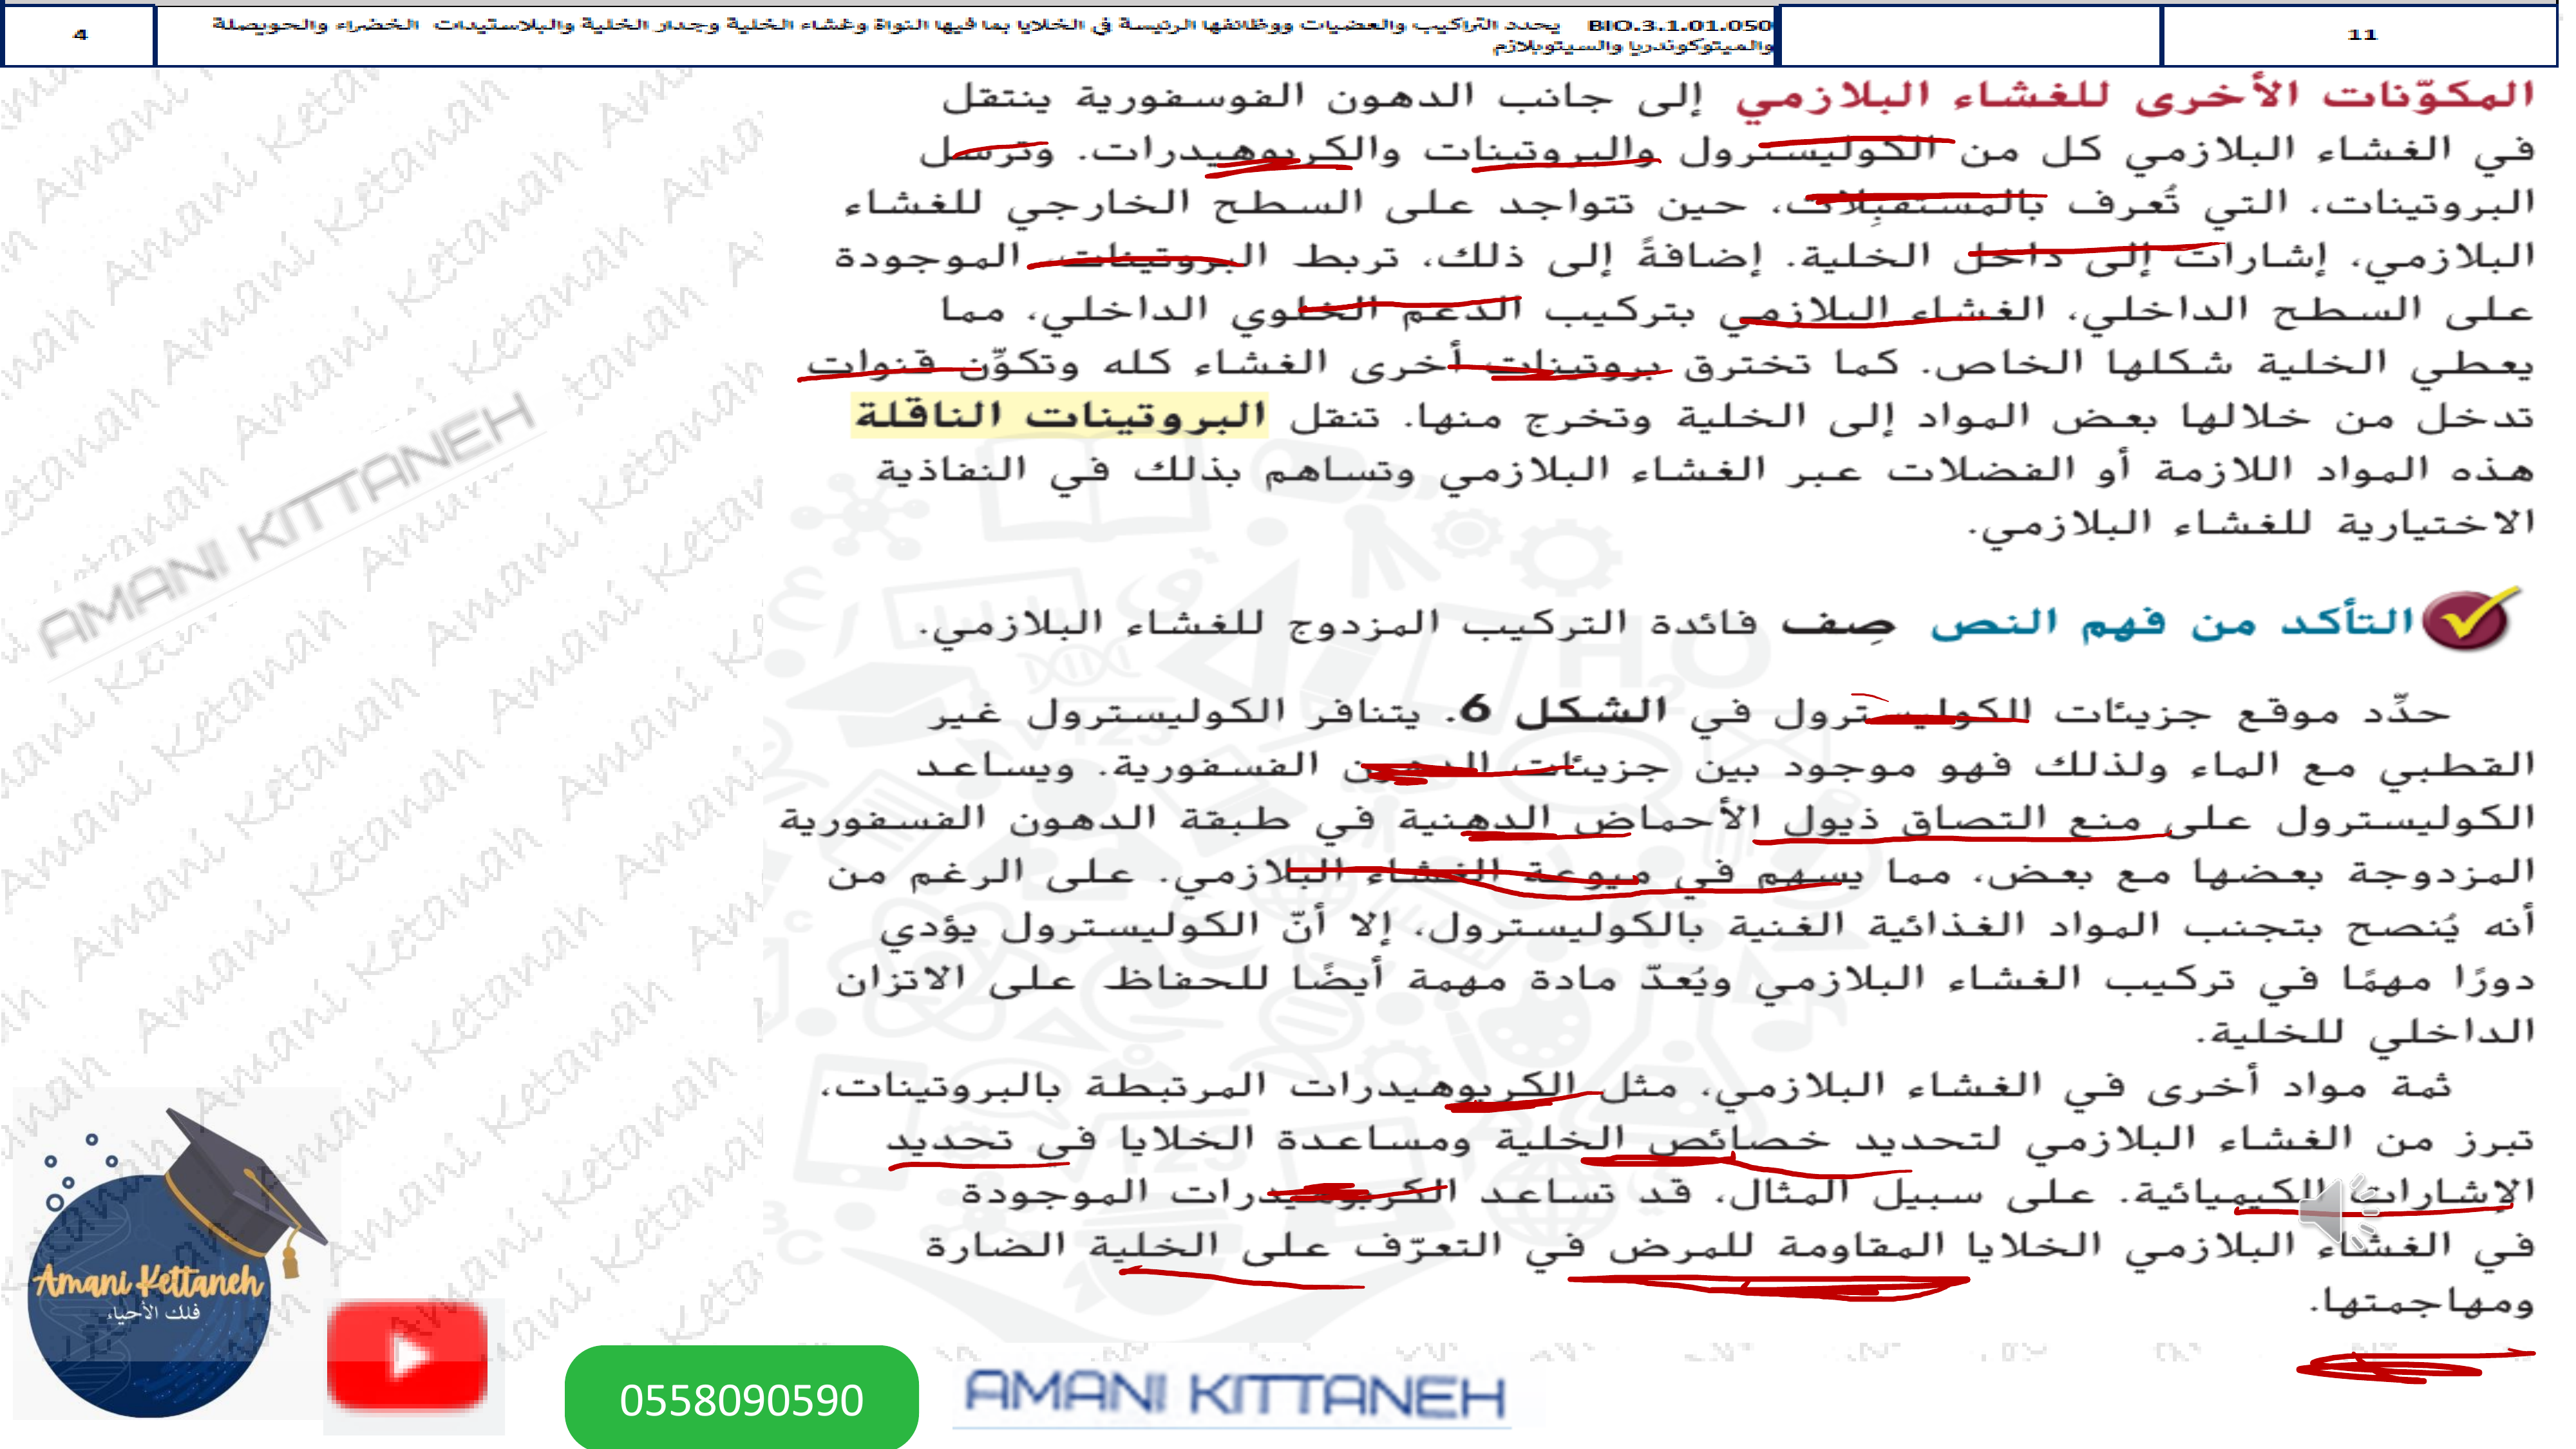 11
BIO.3.1.01.050 يحدد التراكيب والعضيات ووظائفها الرئيسة في الخلايا بما فيها النواة وغشاء الخلية وجدار الخلية والبلاستيدات الخضراء والحويصلة
والميتوكوندريا والسيتوبلازم
4
المكوّنات الأخرى للغشاء البلازمي إلى جانب الدهون الفوسفورية ينتقل
في الغشاء البلازمي كل من الكوليسترول والبروتينات والكربوهيدرات. وترسل
البروتينات، التي تُعرف بالمستقبِلات، حين تتواجد على السطح الخارجي للغشاء
البلازمي، إشارات إلى داخل الخلية. إضافةً إلى ذلك، تربط البروتينات، الموجودة
على السطح الداخلي، الغشاء البلازمي بتركيب الدعم الخلوي الداخلي، مما
يعطي الخلية شكلها الخاص. كما تخترق بروتينات أخرى الغشاء كله وتكوّن قنوات
تدخل من خلالها بعض المواد إلى الخلية وتخرج منها. تنقل البروتينات الناقلة
هذه المواد اللازمة أو الفضلات عبر الغشاء البلازمي وتساهم بذلك في النفاذية
الاختيارية للغشاء البلازمي.
التأكد من فهم النص صِف فائدة التركيب المزدوج للغشاء البلازمي.
حدّد موقع جزيئات الكوليسترول في الشكل 6. يتنافر الكوليسترول غير
القطبي مع الماء ولذلك فهو موجود بين جزيئات الدهون الفسفورية. ويساعد
الكوليسترول على منع التصاق ذيول الأحماض الدهنية في طبقة الدهون الفسفورية
المزدوجة بعضها مع بعض، مما يسهم في ميوعة الغشاء البلازمي. على الرغم من
أنه يُنصح بتجنب المواد الغذائية الغنية بالكوليسترول، إلا أنّ الكوليسترول يؤدي
دورًا مهمًا في تركيب الغشاء البلازمي ويُعدّ مادة مهمة أيضًا للحفاظ على الاتزان
الداخلي للخلية.
ثمة مواد أخرى في الغشاء البلازمي، مثل الكربوهيدرات المرتبطة بالبروتينات،
تبرز من الغشاء البلازمي لتحديد خصائص الخلية ومساعدة الخلايا في تحديد
الإشارات الكيميائية. على سبيل المثال، قد تساعد الكربوهيدرات الموجودة
في الغشاء البلازمي الخلايا المقاومة للمرض في التعرّف على الخلية الضارة
ومهاجمتها.
AMANI KITTANEH
Amani Kettaneh
فلك الأحياء
0558090590
AMANI KITTANEH